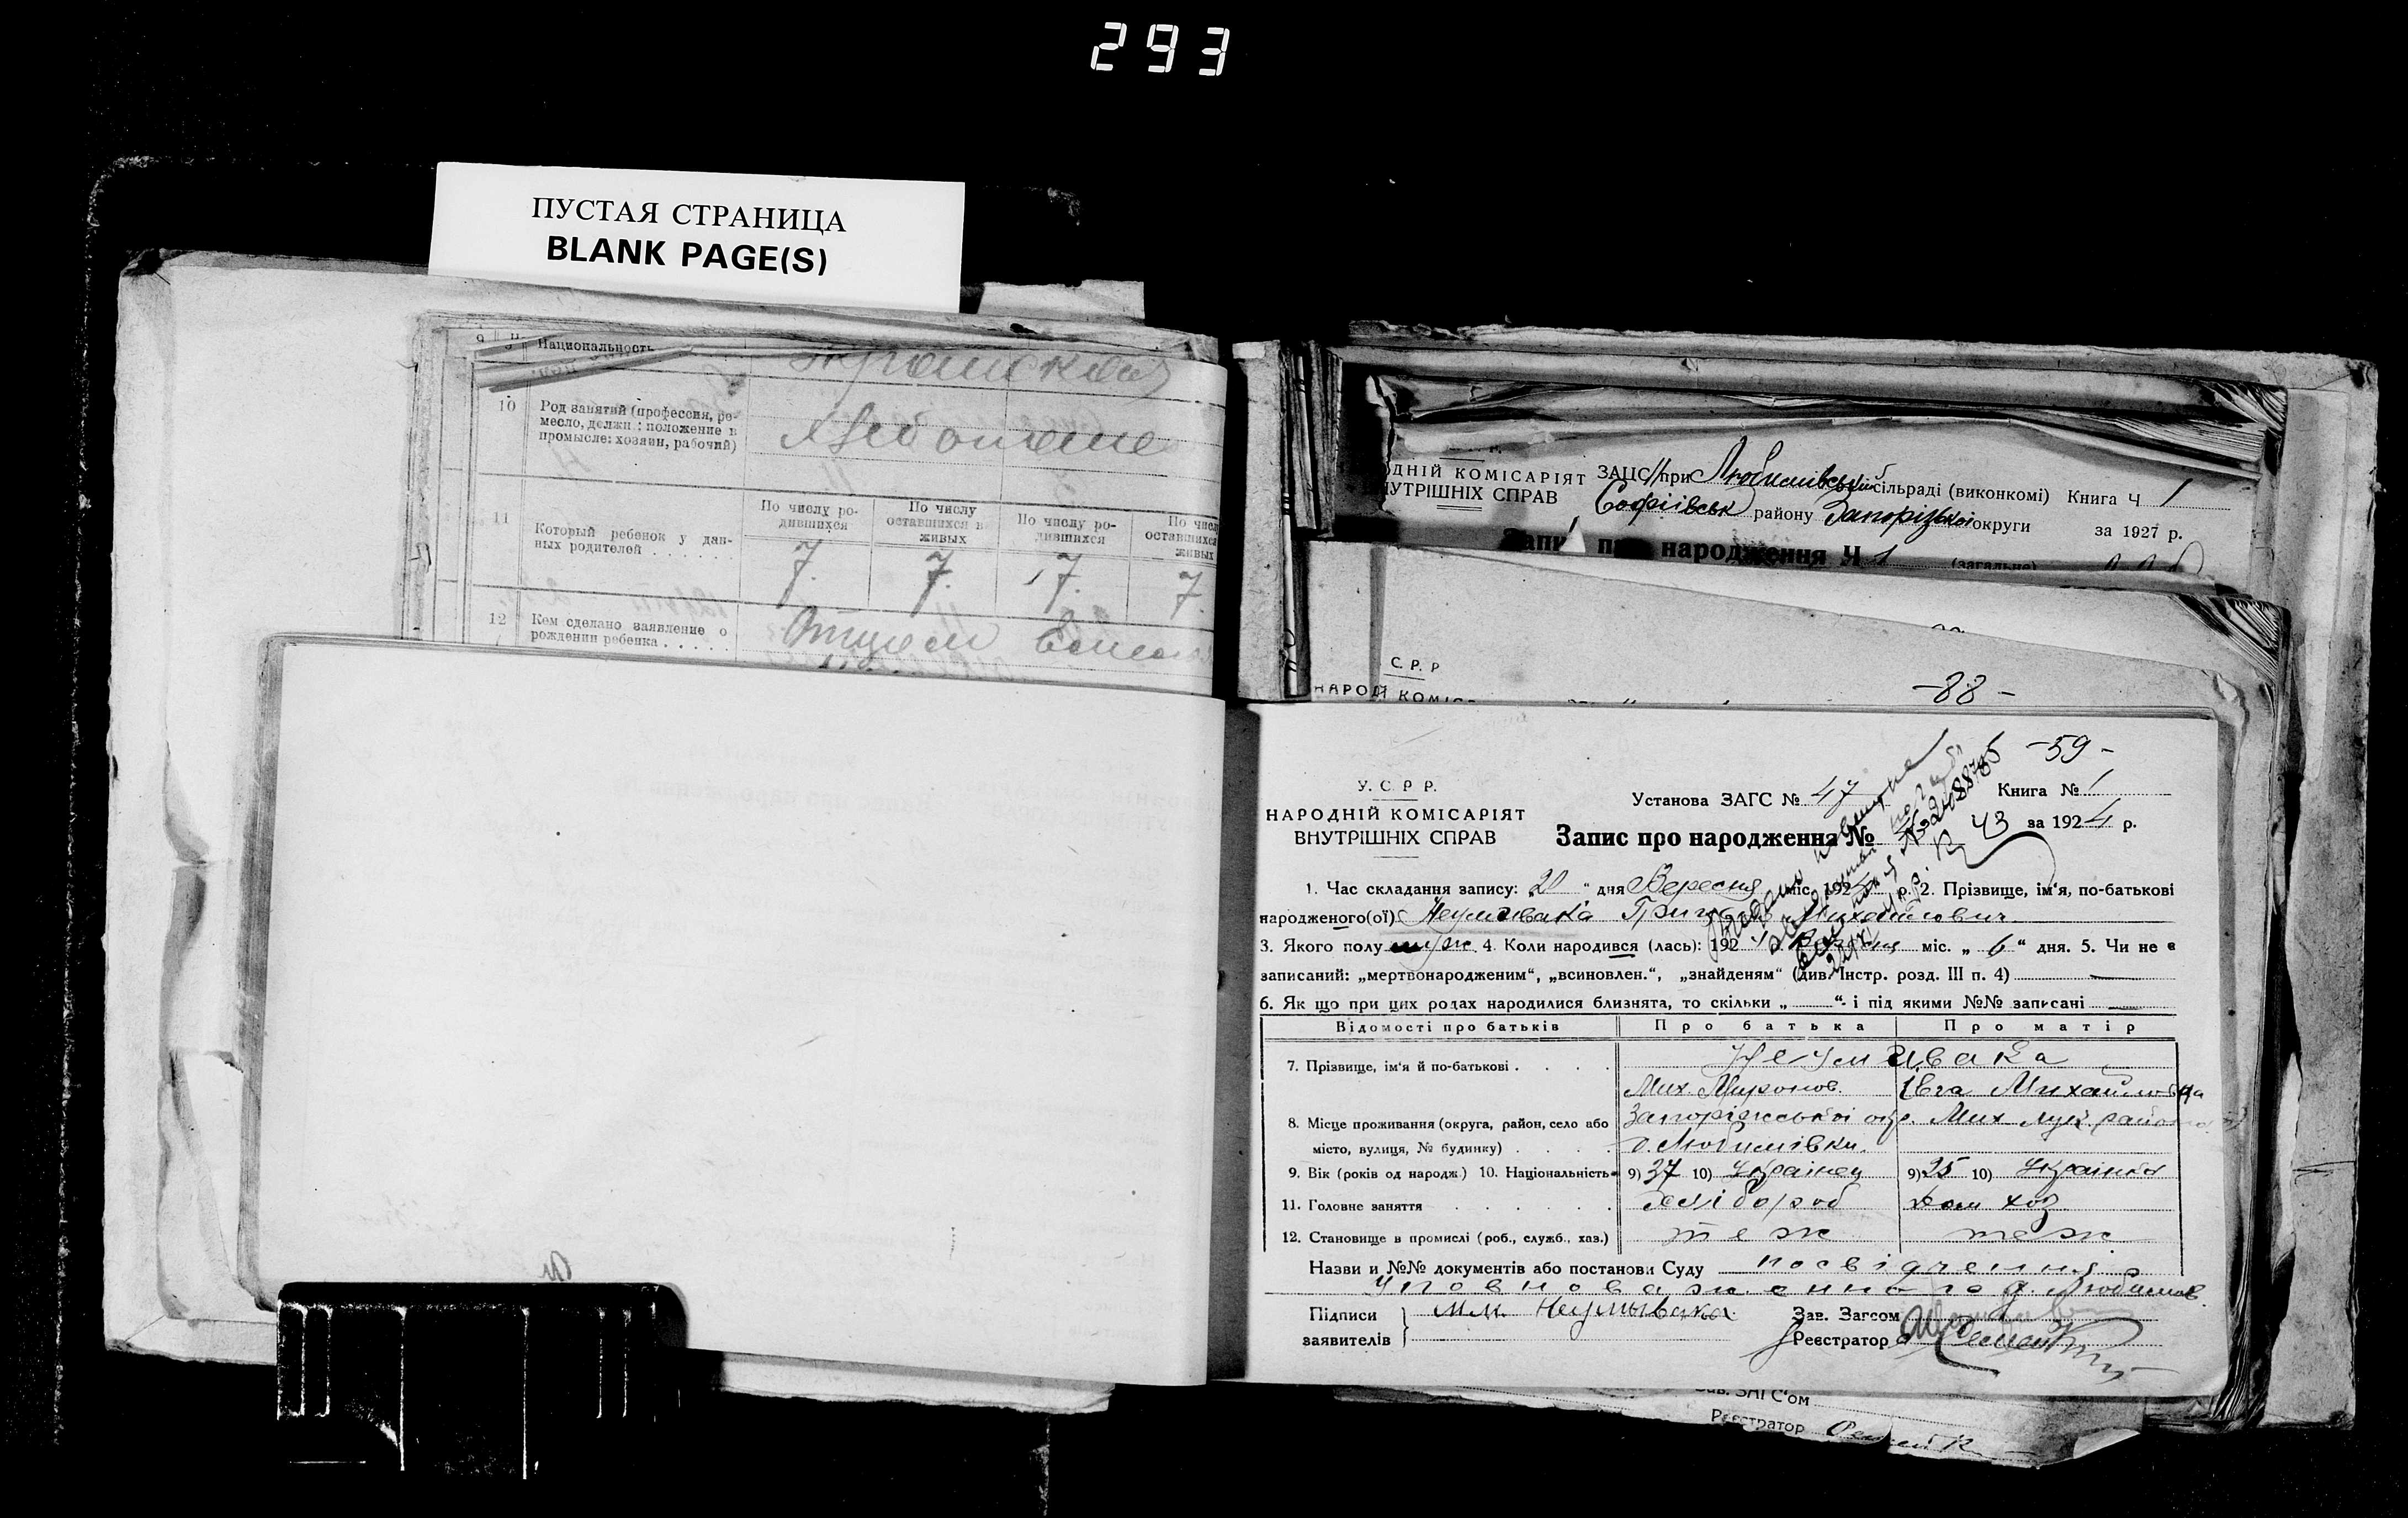 293
ПУСТАЯ СТРАНИЦА
BLANK PAGE(S)
9 Национальность
10 Род занятий (профессия, ре-
месло, должн.: положение в
промысле: хозяин, рабочий)
11 Который ребенок у дан-
ных родителей
По числу ро-
дившихся
По числу
оставшихся в
живых
По числу ро-
дившихся
По числ
оставшихся
живых
7. 7. 7. 7.
12 Кем сделано заявление о
рождении ребенка
Отцем
ДНІЙ КОМІСАРІЯТ
НУТРІШНІХ СПРАВ
ЗАЦС при Любимівській сільраді (виконкомі) Книга Ч 1
Софіївськ району Запорізької округи за 1927 р.
Запис про народження Ч 1 (загальне)
С. Р. Р
НАРОДІ КОМІС
-88-
-59-
У. С. Р Р.
НАРОДНІЙ КОМІСАРІЯТ
ВНУТРІШНІХ СПРАВ
Установа ЗАГС № 47 Книга № 1
Запис про народження № 43 за 1924 р.
№ 2088785
1. Час складання запису: „20“ дня Вересня міс. 1924 р. 2. Прізвище, ім'я, по-батькові
народженого(ої) Неумивака Михайлович
3. Якого полу муж. 4. Коли народився (лась): 192 міс. „6“ дня. 5. Чи не є
записаний: „мертвонародженим“, „всиновлен.“, „знайденям“ (див. Інстр. розд. III п. 4)
6. Як що при цих родах народилися близнята, то скільки „ “ і під якими №№ записані
Відомості про батьків Про батька Про матір
7. Прізвище, ім'я й по-батькові Неумивака
Мих. Миронов. Євга Михайловна
8. Місце проживання (округа, район, село або Запоріжської окр. Мих Лук. район
місто, вулиця, № будинку) с. Любимівки.
9. Вік (років од народж.) 10. Національність 9) 37 10) Українец 9) 25 10) Українка
11. Головне заняття хлібороб дом хоз
12. Становище в промислі (роб., служб., хаз.) теж теж
Назви и №№ документів або постанови Суду посвідчення
Уповноваженного д. Любимов.
Підписи
заявителів
М.М. Неумывака
Зав. Загсом
Реєстратор
Зав. ЗАГС'ом
Реєстратор